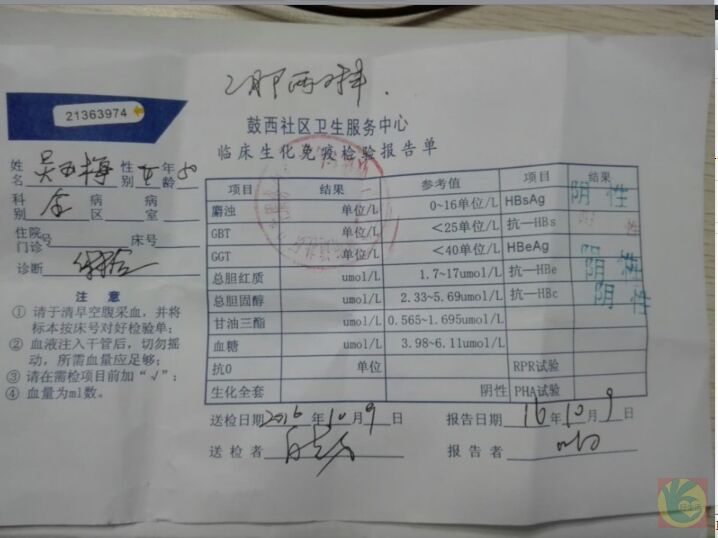 乙肝两对半.
21363974
鼓西社区卫生服务中心
临床生化免疫检验报告单
姓名 性别 女 年龄
科别 病区 病室
住院号 门诊 床号
诊断
注 意
① 请于清早空腹采血，并将标本按床号对好检验单；
② 血液注入干管后，切勿摇动，所需血量应足够；
③ 请在需检项目前加“√”；
④ 血量为ml数。
项目 结果 参考值 项目 结果
麝浊 单位/L 0~16单位/L HBsAg 阴性
GBT 单位/L <25单位/L 抗—HBs 阴性
GGT 单位/L <40单位/L HBeAg 阴性
总胆红质 umol/L 1.7~17umol/L 抗—HBe 阴性
总胆固醇 umol/L 2.33~5.69umol/L 抗—HBc 阴性
甘油三酯 umol/L 0.565~1.695umol/L
血糖 umol/L 3.98~6.11umol/L
抗O 单位 RPR试验
生化全套 阴性 PHA试验
送检日期 2016 年 10 月 9 日 报告日期 16 年 10 月 9 日
送检者 报告者